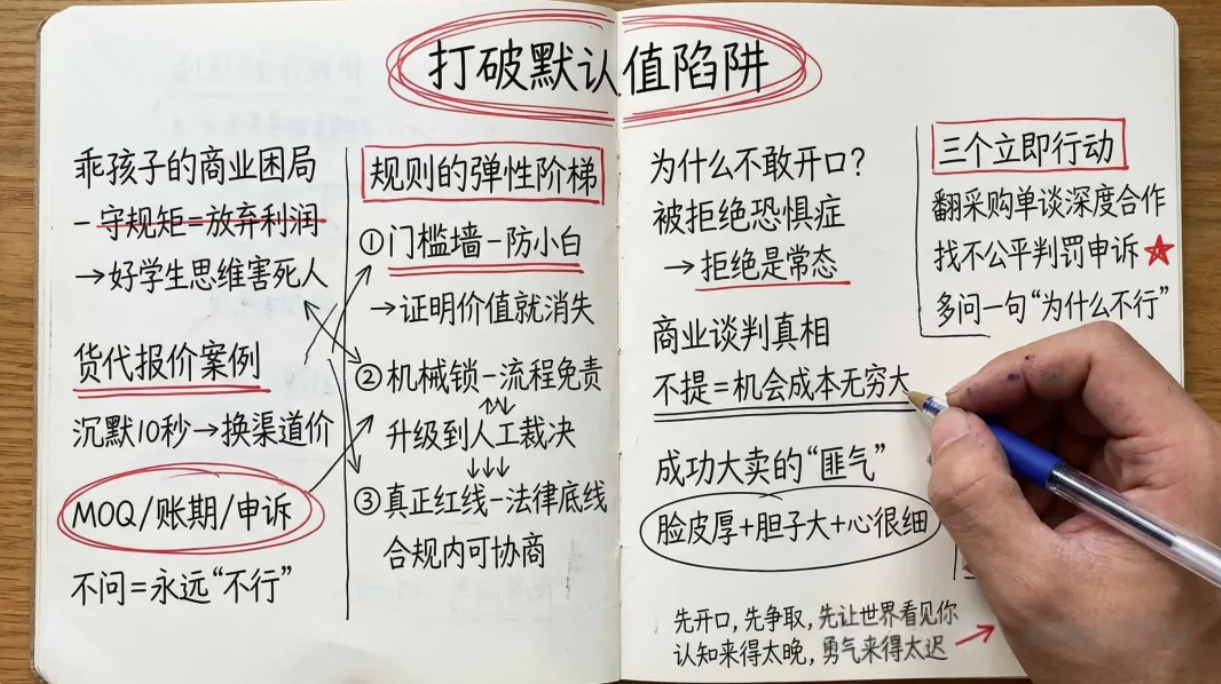 打破默认值陷阱
乖孩子的商业困局
- 守规矩=放弃利润
→好学生思维害死人
货代报价案例
沉默10秒→换渠道价
MOQ/账期/申诉
不问=永远“不行”
规则的弹性阶梯
①门槛墙-防小白
→证明价值就消失
②机械锁-流程免责
升级到人工裁决
↓↓↓
③真正红线-法律底线
合规内可协商
为什么不敢开口?
被拒绝恐惧症
→拒绝是常态
商业谈判真相
不提=机会成本无穷大
成功大卖的“匪气”
脸皮厚+胆子大+心很细
先开口,先争取,先让世界看见你
认知来得太晚,勇气来得太迟
三个立即行动
翻采购单谈深度合作
找不公平判罚申诉★
多问一句“为什么不行”